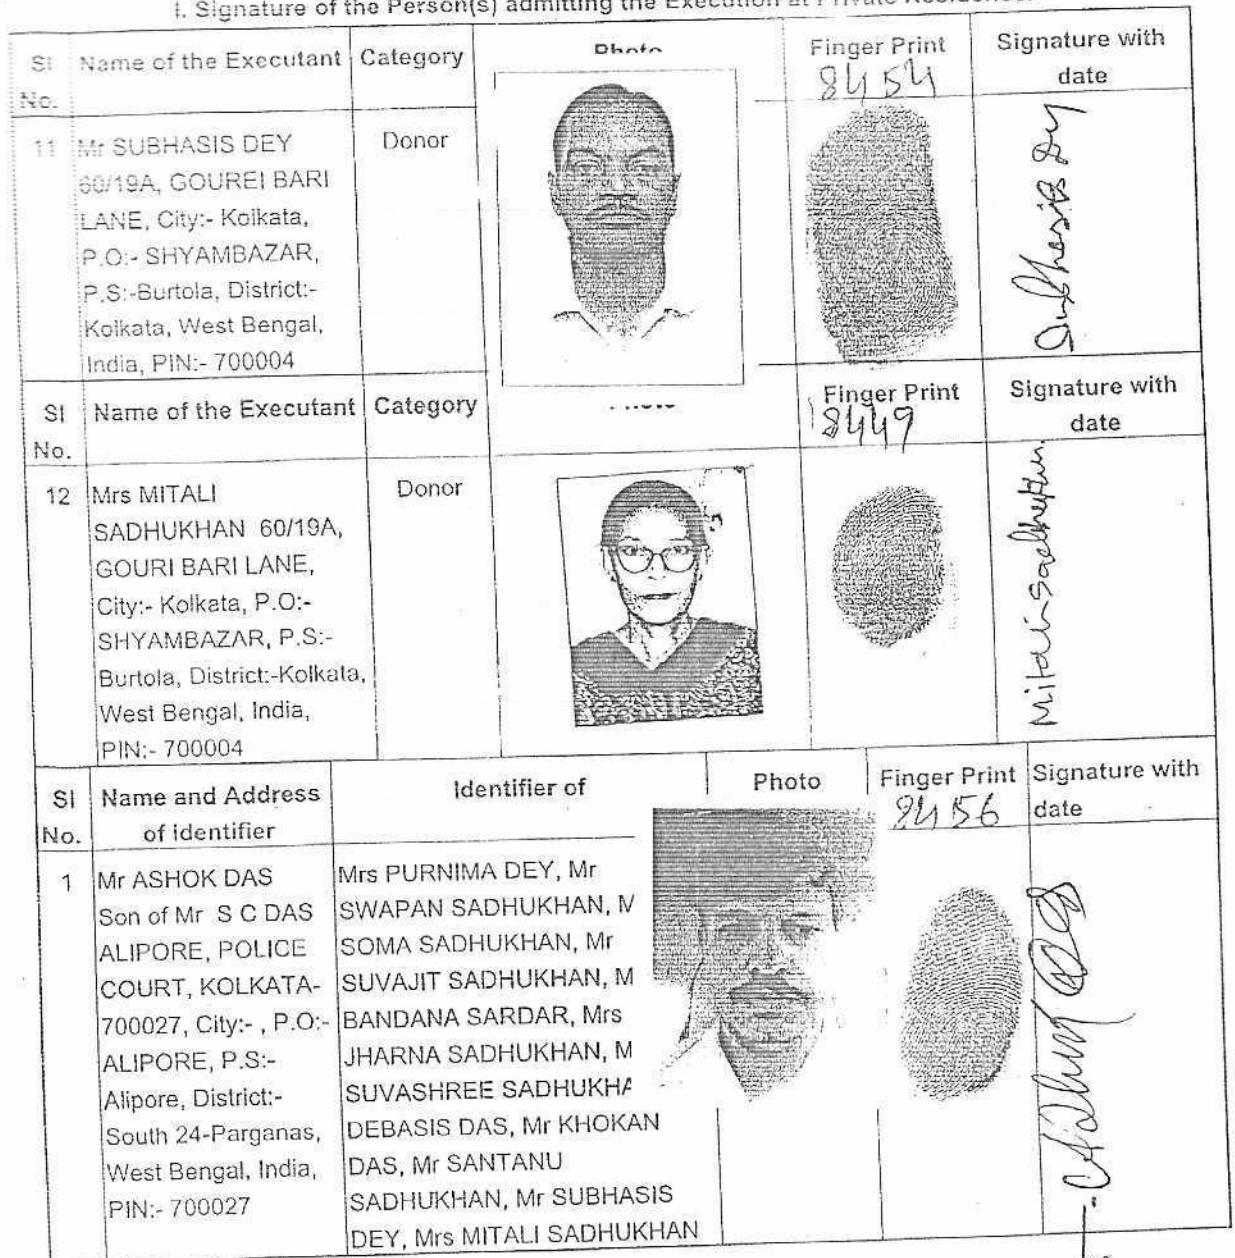 I. Signature of the Person(s) admitting the Execution at Private Residence.
Sl No. Name of the Executant Category Photo Finger Print Signature with date
8454
11 Mr SUBHASIS DEY Donor
60/19A, GOUREI BARI
LANE, City:- Kolkata,
P.O:- SHYAMBAZAR,
P.S:-Burtola, District:-
Kolkata, West Bengal,
India, PIN:- 700004
Subhasis Dey
Sl No. Name of the Executant Category Finger Print Signature with date
8449
12 Mrs MITALI Donor
SADHUKHAN 60/19A,
GOURI BARI LANE,
City:- Kolkata, P.O:-
SHYAMBAZAR, P.S:-
Burtola, District:-Kolkata,
West Bengal, India,
PIN:- 700004
Mitali Sadhukhan
Sl No. Name and Address of identifier Identifier of Photo Finger Print Signature with date
8456
1 Mr ASHOK DAS
Son of Mr S C DAS
ALIPORE, POLICE
COURT, KOLKATA-
700027, City:- , P.O:-
ALIPORE, P.S:-
Alipore, District:-
South 24-Parganas,
West Bengal, India,
PIN:- 700027
Mrs PURNIMA DEY, Mr
SWAPAN SADHUKHAN, M
SOMA SADHUKHAN, Mr
SUVAJIT SADHUKHAN, M
BANDANA SARDAR, Mrs
JHARNA SADHUKHAN, M
SUVASHREE SADHUKHA
DEBASIS DAS, Mr KHOKAN
DAS, Mr SANTANU
SADHUKHAN, Mr SUBHASIS
DEY, Mrs MITALI SADHUKHAN